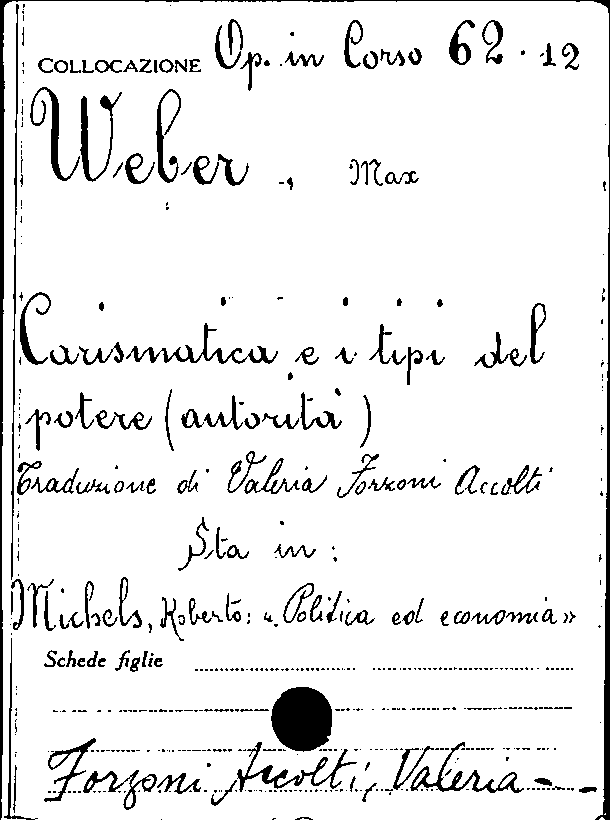 COLLOCAZIONE Op. in Corso 62 · 12
Weber, Max
Carismatica e i tipi del
potere (autorità)
Traduzione di Valeria Forzoni Accolti
Sta in:
Michels, Roberto: «Politica ed economia»
Schede figlie
Forzoni Accolti, Valeria - -